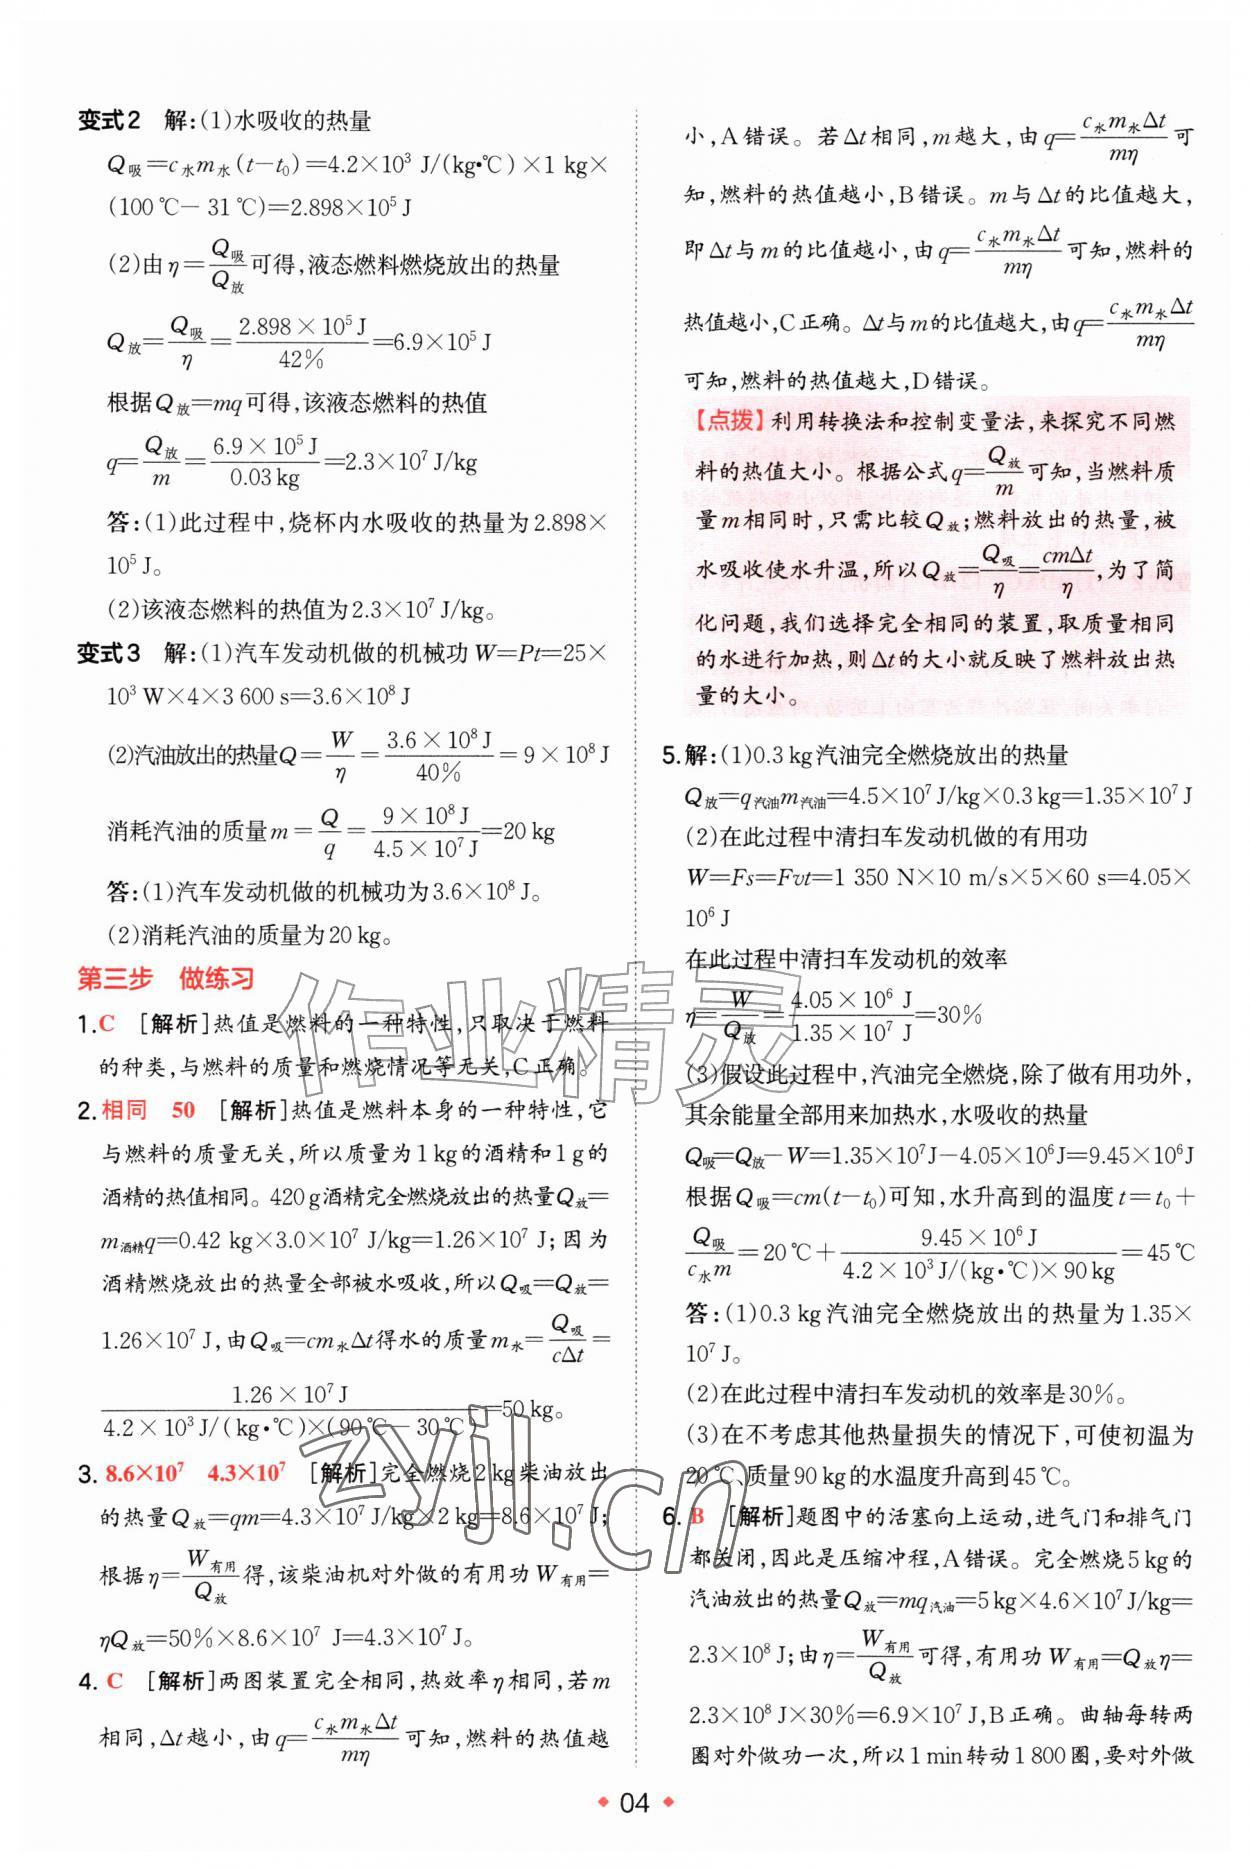 变式2 解:(1)水吸收的热量
Q吸=c水m水(t-t₀)=4.2×10³ J/(kg•℃)×1 kg×
(100 ℃-31 ℃)=2.898×10⁵ J
(2)由η=Q吸/Q放可得,液态燃料燃烧放出的热量
Q放=Q吸/η=(2.898×10⁵ J)/42%=6.9×10⁵ J
根据Q放=mq可得,该液态燃料的热值
q=Q放/m=(6.9×10⁵ J)/(0.03 kg)=2.3×10⁷ J/kg
答:(1)此过程中,烧杯内水吸收的热量为2.898×
10⁵ J。
(2)该液态燃料的热值为2.3×10⁷ J/kg。
变式3 解:(1)汽车发动机做的机械功W=Pt=25×
10³ W×4×3 600 s=3.6×10⁸ J
(2)汽油放出的热量Q=W/η=(3.6×10⁸ J)/40%=9×10⁸ J
消耗汽油的质量m=Q/q=(9×10⁸ J)/(4.5×10⁷ J)=20 kg
答:(1)汽车发动机做的机械功为3.6×10⁸ J。
(2)消耗汽油的质量为20 kg。
第三步 做练习
1.C [解析]热值是燃料的一种特性,只取决于燃料
的种类,与燃料的质量和燃烧情况等无关,C正确。
2.相同 50 [解析]热值是燃料本身的一种特性,它
与燃料的质量无关,所以质量为1 kg的酒精和1 g的
酒精的热值相同。420 g酒精完全燃烧放出的热量Q放=
m酒精q=0.42 kg×3.0×10⁷ J/kg=1.26×10⁷ J;因为
酒精燃烧放出的热量全部被水吸收,所以Q吸=Q放=
1.26×10⁷ J,由Q吸=cm水Δt得水的质量m水=Q吸/cΔt=
(1.26×10⁷ J)/(4.2×10³ J/(kg•℃)×(90℃-30℃))=50 kg。
3.8.6×10⁷ 4.3×10⁷ [解析]完全燃烧2 kg柴油放出
的热量Q放=qm=4.3×10⁷ J/kg×2 kg=8.6×10⁷ J;
根据η=W有用/Q放得,该柴油机对外做的有用功W有用=
ηQ放=50%×8.6×10⁷ J=4.3×10⁷ J。
4.C [解析]两图装置完全相同,热效率η相同,若m
相同,Δt越小,由q=c水m水Δt/mη可知,燃料的热值越
小,A错误。若Δt相同,m越大,由q=c水m水Δt/mη可
知,燃料的热值越小,B错误。m与Δt的比值越大,
即Δt与m的比值越小,由q=c水m水Δt/mη可知,燃料的
热值越小,C正确。Δt与m的比值越大,由q=c水m水Δt/mη
可知,燃料的热值越大,D错误。
【点拨】利用转换法和控制变量法,来探究不同燃
料的热值大小。根据公式q=Q放/m可知,当燃料质
量m相同时,只需比较Q放;燃料放出的热量,被
水吸收使水升温,所以Q放=Q吸/η=cmΔt/η,为了简
化问题,我们选择完全相同的装置,取质量相同
的水进行加热,则Δt的大小就反映了燃料放出热
量的大小。
5.解:(1)0.3 kg汽油完全燃烧放出的热量
Q放=q汽油m汽油=4.5×10⁷ J/kg×0.3 kg=1.35×10⁷ J
(2)在此过程中清扫车发动机做的有用功
W=Fs=Fvt=1 350 N×10 m/s×5×60 s=4.05×
10⁶ J
在此过程中清扫车发动机的效率
η=W/Q放=(4.05×10⁶ J)/(1.35×10⁷ J)=30%
(3)假设此过程中,汽油完全燃烧,除了做有用功外,
其余能量全部用来加热水,水吸收的热量
Q吸=Q放-W=1.35×10⁷J-4.05×10⁶J=9.45×10⁶J
根据Q吸=cm(t-t₀)可知,水升高到的温度t=t₀+
Q吸/c水m=20 ℃+(9.45×10⁶ J)/(4.2×10³ J/(kg•℃)×90 kg)=45 ℃
答:(1)0.3 kg汽油完全燃烧放出的热量为1.35×
10⁷ J。
(2)在此过程中清扫车发动机的效率是30%。
(3)在不考虑其他热量损失的情况下,可使初温为
20 ℃、质量90 kg的水温度升高到45 ℃。
6.B [解析]题图中的活塞向上运动,进气门和排气门
都关闭,因此是压缩冲程,A错误。完全燃烧5 kg的
汽油放出的热量Q放=mq汽油=5 kg×4.6×10⁷ J/kg=
2.3×10⁸ J;由η=W有用/Q放可得,有用功W有用=Q放η=
2.3×10⁸ J×30%=6.9×10⁷ J,B正确。曲轴每转两
圈对外做功一次,所以1 min转动1 800圈,要对外做
04
作业精灵
zyjl.cn